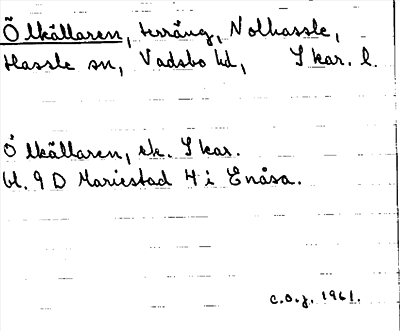 Ölkällaren, terräng, Nolhassle,
Hassle sn, Vadsbo hd, Skar. l.
Ölkällaren, ek. Skar.
bl. 9 D Mariestad 4 i Enåsa.
c.o.j. 1961.